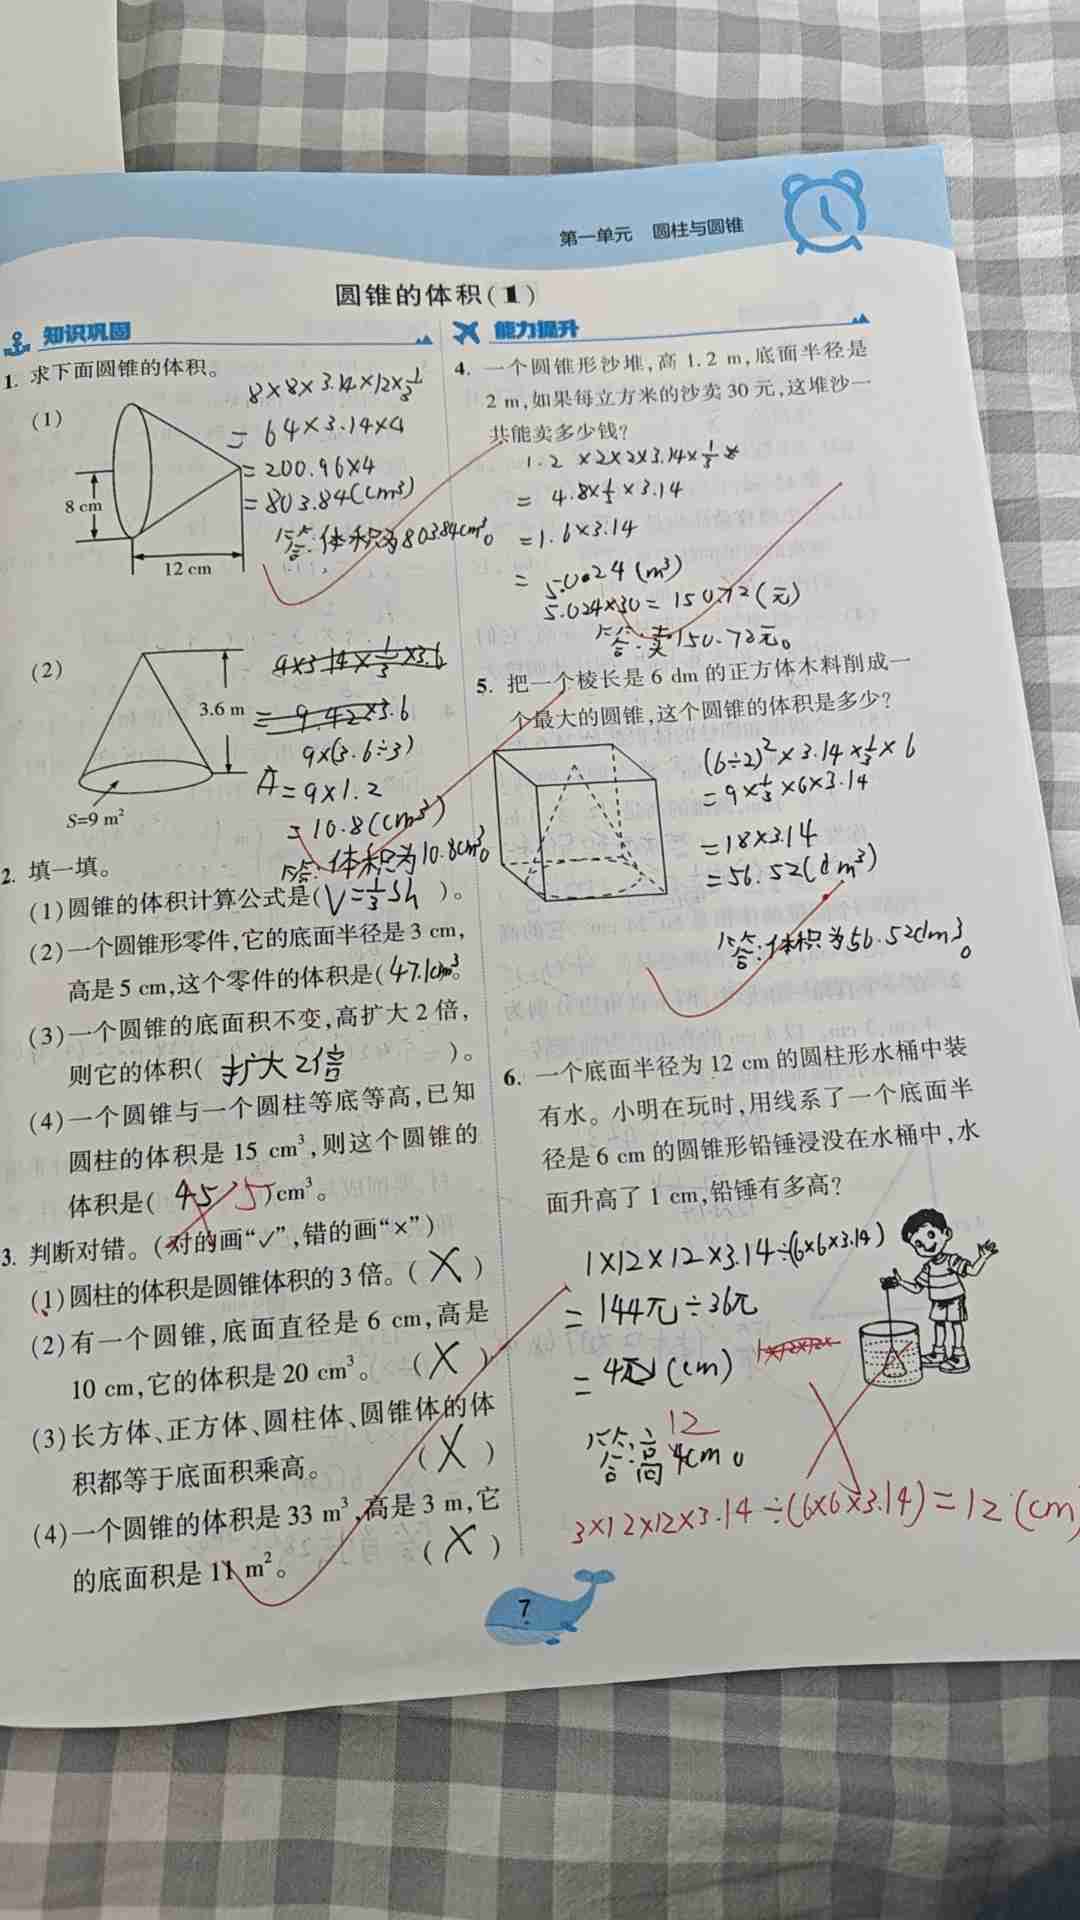 第一单元 圆柱与圆锥
圆锥的体积(1)
知识巩固
1. 求下面圆锥的体积。
(1)
8 cm
12 cm
8×8×3.14×12×1/3
= 64×3.14×4
= 200.96×4
= 803.84(cm³)
答:体积为803.84cm³。
(2)
3.6 m
S=9 m²
9×3.14×1/3×3.6
= 9.42×3.6
9×(3.6÷3)
= 9×1.2
= 10.8(cm³)
答:体积为10.8cm³。
2. 填一填。
(1)圆锥的体积计算公式是(V=1/3Sh)。
(2)一个圆锥形零件,它的底面半径是3 cm,
高是5 cm,这个零件的体积是(47.1cm³。
(3)一个圆锥的底面积不变,高扩大2倍,
则它的体积( 扩大2倍 )。
(4)一个圆锥与一个圆柱等底等高,已知
圆柱的体积是 15 cm³,则这个圆锥的
体积是( 45 5)cm³。
3. 判断对错。(对的画“✓”,错的画“×”)
(1)圆柱的体积是圆锥体积的3倍。( X )
(2)有一个圆锥,底面直径是6 cm,高是
10 cm,它的体积是20 cm³。 ( X )
(3)长方体、正方体、圆柱体、圆锥体的体
积都等于底面积乘高。 ( X )
(4)一个圆锥的体积是33 m³,高是3 m,它
的底面积是11 m²。 ( X )
能力提升
4. 一个圆锥形沙堆,高1.2 m,底面半径是
2 m,如果每立方米的沙卖30元,这堆沙一
共能卖多少钱?
1.2×2×2×3.14×1/3
= 4.8×1/3×3.14
= 1.6×3.14
= 5.024(m³)
5.024×30=150.72(元)
答:卖150.72元。
5. 把一个棱长是6 dm的正方体木料削成一
个最大的圆锥,这个圆锥的体积是多少?
(6÷2)²×3.14×1/3×6
= 9×1/3×6×3.14
= 18×3.14
= 56.52(dm³)
答:体积为56.52dm³。
6. 一个底面半径为12 cm的圆柱形水桶中装
有水。小明在玩时,用线系了一个底面半
径是6 cm的圆锥形铅锤浸没在水桶中,水
面升高了1 cm,铅锤有多高?
1×12×12×3.14÷(6×6×3.14)
= 144π÷36π
= 4π(cm) 1×12×12×
12
答:高4cm。
3×12×12×3.14÷(6×6×3.14)=12(cm)
7